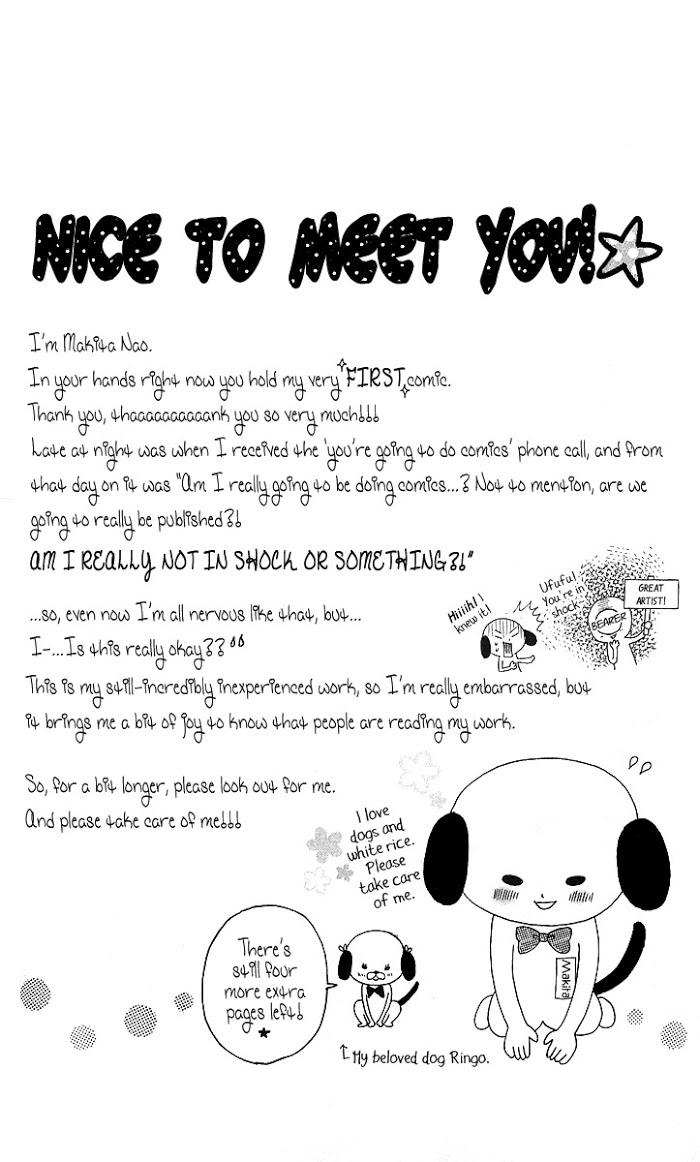 NICE TO MEET YOU!
I'm Makita Nao.
In your hands right now you hold my very FIRST comic.
Thank you, thaaaaaaaaaank you so very much!!!
Late at night was when I received the 'you're going to do comics' phone call, and from
that day on it was "Am I really going to be doing comics...? Not to mention, are we
going to really be published?!
AM I REALLY NOT IN SHOCK OR SOMETHING?!"
...so, even now I'm all nervous like that, but...
I-...Is this really okay??
This is my still-incredibly inexperienced work, so I'm really embarrassed, but
it brings me a bit of joy to know that people are reading my work.
Hiiiih! I
knew it!
Ufufu!
You're in
shock~
BEARER
GREAT
ARTIST!
So, for a bit longer, please look out for me.
And please take care of me!!!
I love
dogs and
white rice.
Please
take care
of me.
Makita
There's
still four
more extra
pages left!
My beloved dog Ringo.